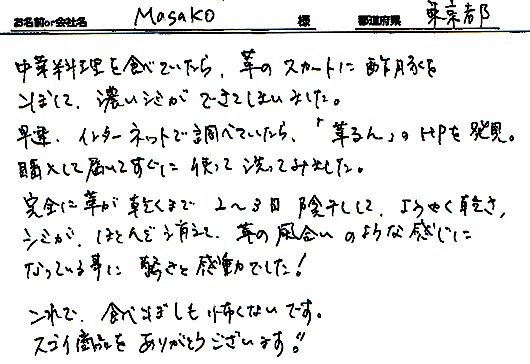 お名前or会社名 Masako 様 都道府県 東京都
中華料理を食べていたら、革のスカートに酢豚を
こぼして、濃いシミができてしまいました。
早速、インターネットで調べていたら、「革るん」のHPを発見。
購入して届いてすぐに使って洗ってみました。
完全に革が乾くまで2〜3日陰干しして、ようやく乾き、
シミが、ほとんど消えて、革の風合いのような感じに
なっている事に驚きと感動でした!
これで、食べこぼしも怖くないです。
スゴイ商品をありがとうございます!!